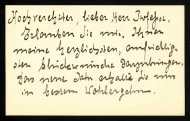 Hochverehrter, lieber Herr Professor.
Erlauben Sie mir, Ihnen
meine herzlichsten, aufrichtig-
sten Glückwünsche darzubringen.
Das neue Jahr erhalte Sie uns
in bestem Wohlergehen.